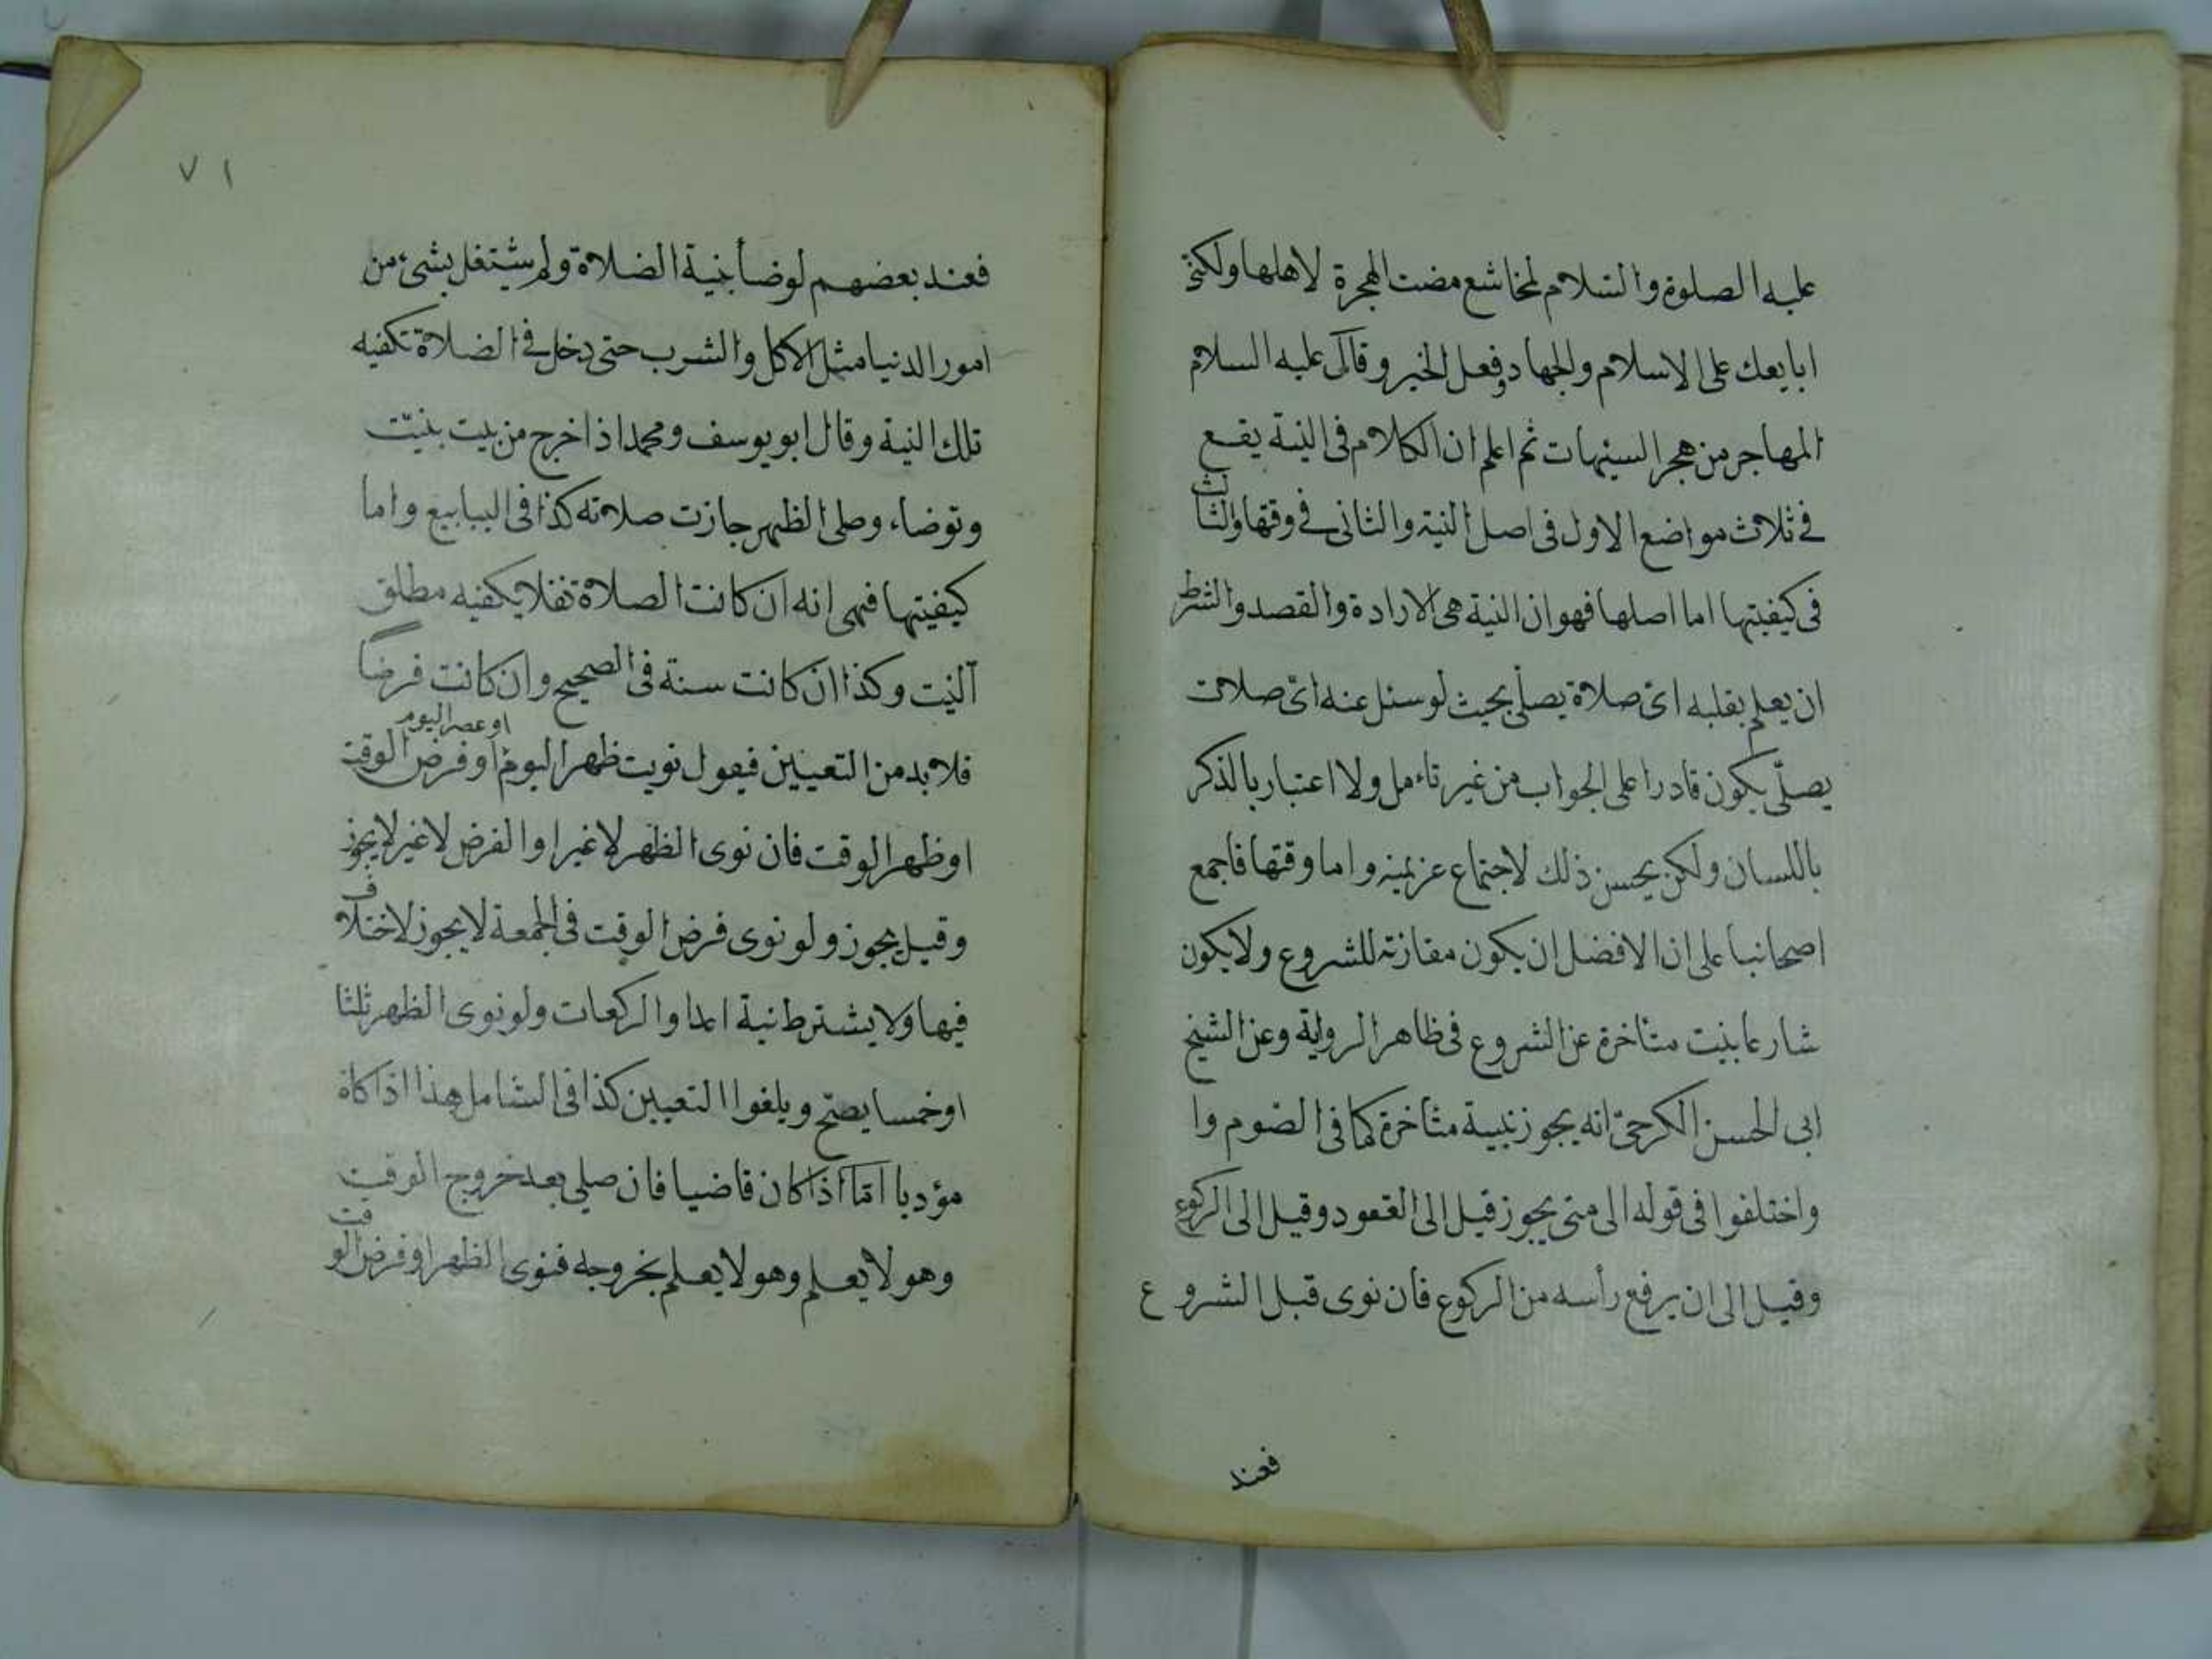 عليه الصلوة والسلام لمخاشع مضت الهجرة لاهلها ولكنى
ابايعك على الاسلام والجهاد وفعل الخير وقال عليه السلام
المهاجر من هجر السيئات ثم اعلم ان الكلام فى النية يقع
فى ثلاث مواضع الاول فى اصل النية والثانى فى وقتها والثالث
فى كيفيتها اما اصلها فهو ان النية هى الارادة والقصد والشرط
ان يعلم بقلبه اىّ صلاة يصلى بحيث لو سئل عنه اىّ صلات
يصلّى يكون قادرا على الجواب من غير تاءمل ولا اعتبار بالذكر
باللسان ولكن يحسن ذلك لاجتماع عزيمته واما وقتها فاجمع
اصحابنا على ان الافضل ان يكون مقارنة للشروع ولا يكون
شارعا بنيت متأخرة عن الشروع فى ظاهر الرواية وعن الشيخ
ابى الحسن الكرخىّ انه يجوز بنية متأخرة كما فى الصوم وا
واختلفوا فى قوله الى متى يجوز قيل الى القعود وقيل الى الركوع
وقيل الى ان يرفع رأسه من الركوع فان نوى قبل الشروع
فعند
٧١
فعند بعضهم لو وضأ بنية الصلاة ولم يشتغل بشىء من
امور الدنيا مثل الاكل والشرب حتى دخل فى الصلاة تكفيه
تلك النية وقال ابو يوسف ومحمد اذا خرج من بيت بنيّت
وتوضاء وصلى الظهر جازت صلاته كذا فى الينابيع واما
كيفيتها فهى انه ان كانت الصلاة نفلا يكفيه مطلق
النيت وكذا ان كانت سنة فى الصحيح وان كانت فرضا
فلا بد من التعيين فيقول نويت ظهر اليوم او عصر اليوم او فرض الوقت
او ظهر الوقت فان نوى الظهر لا غير او الفرض لا غير لا يجوز
وقيل يجوز ولو نوى فرض الوقت فى الجمعة لا يجوز لاختلاف
فيها ولا يشترط نية اعداد الركعات ولو نوى الظهر ثلثا
او خمسا يصح ويلغوا التعيين كذا فى الشامل هذا اذا كان
مؤديا امّا اذا كان قاضيا فان صلى بعد خروج الوقت
وهو لا يعلم وهو لا يعلم بخروجه فنوى الظهر او فرض الوقت